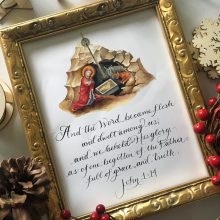 And the Word became flesh
and dwelt among us,
and we beheld His glory
as of one begotten of the Father
full of grace and truth.
John 1:14